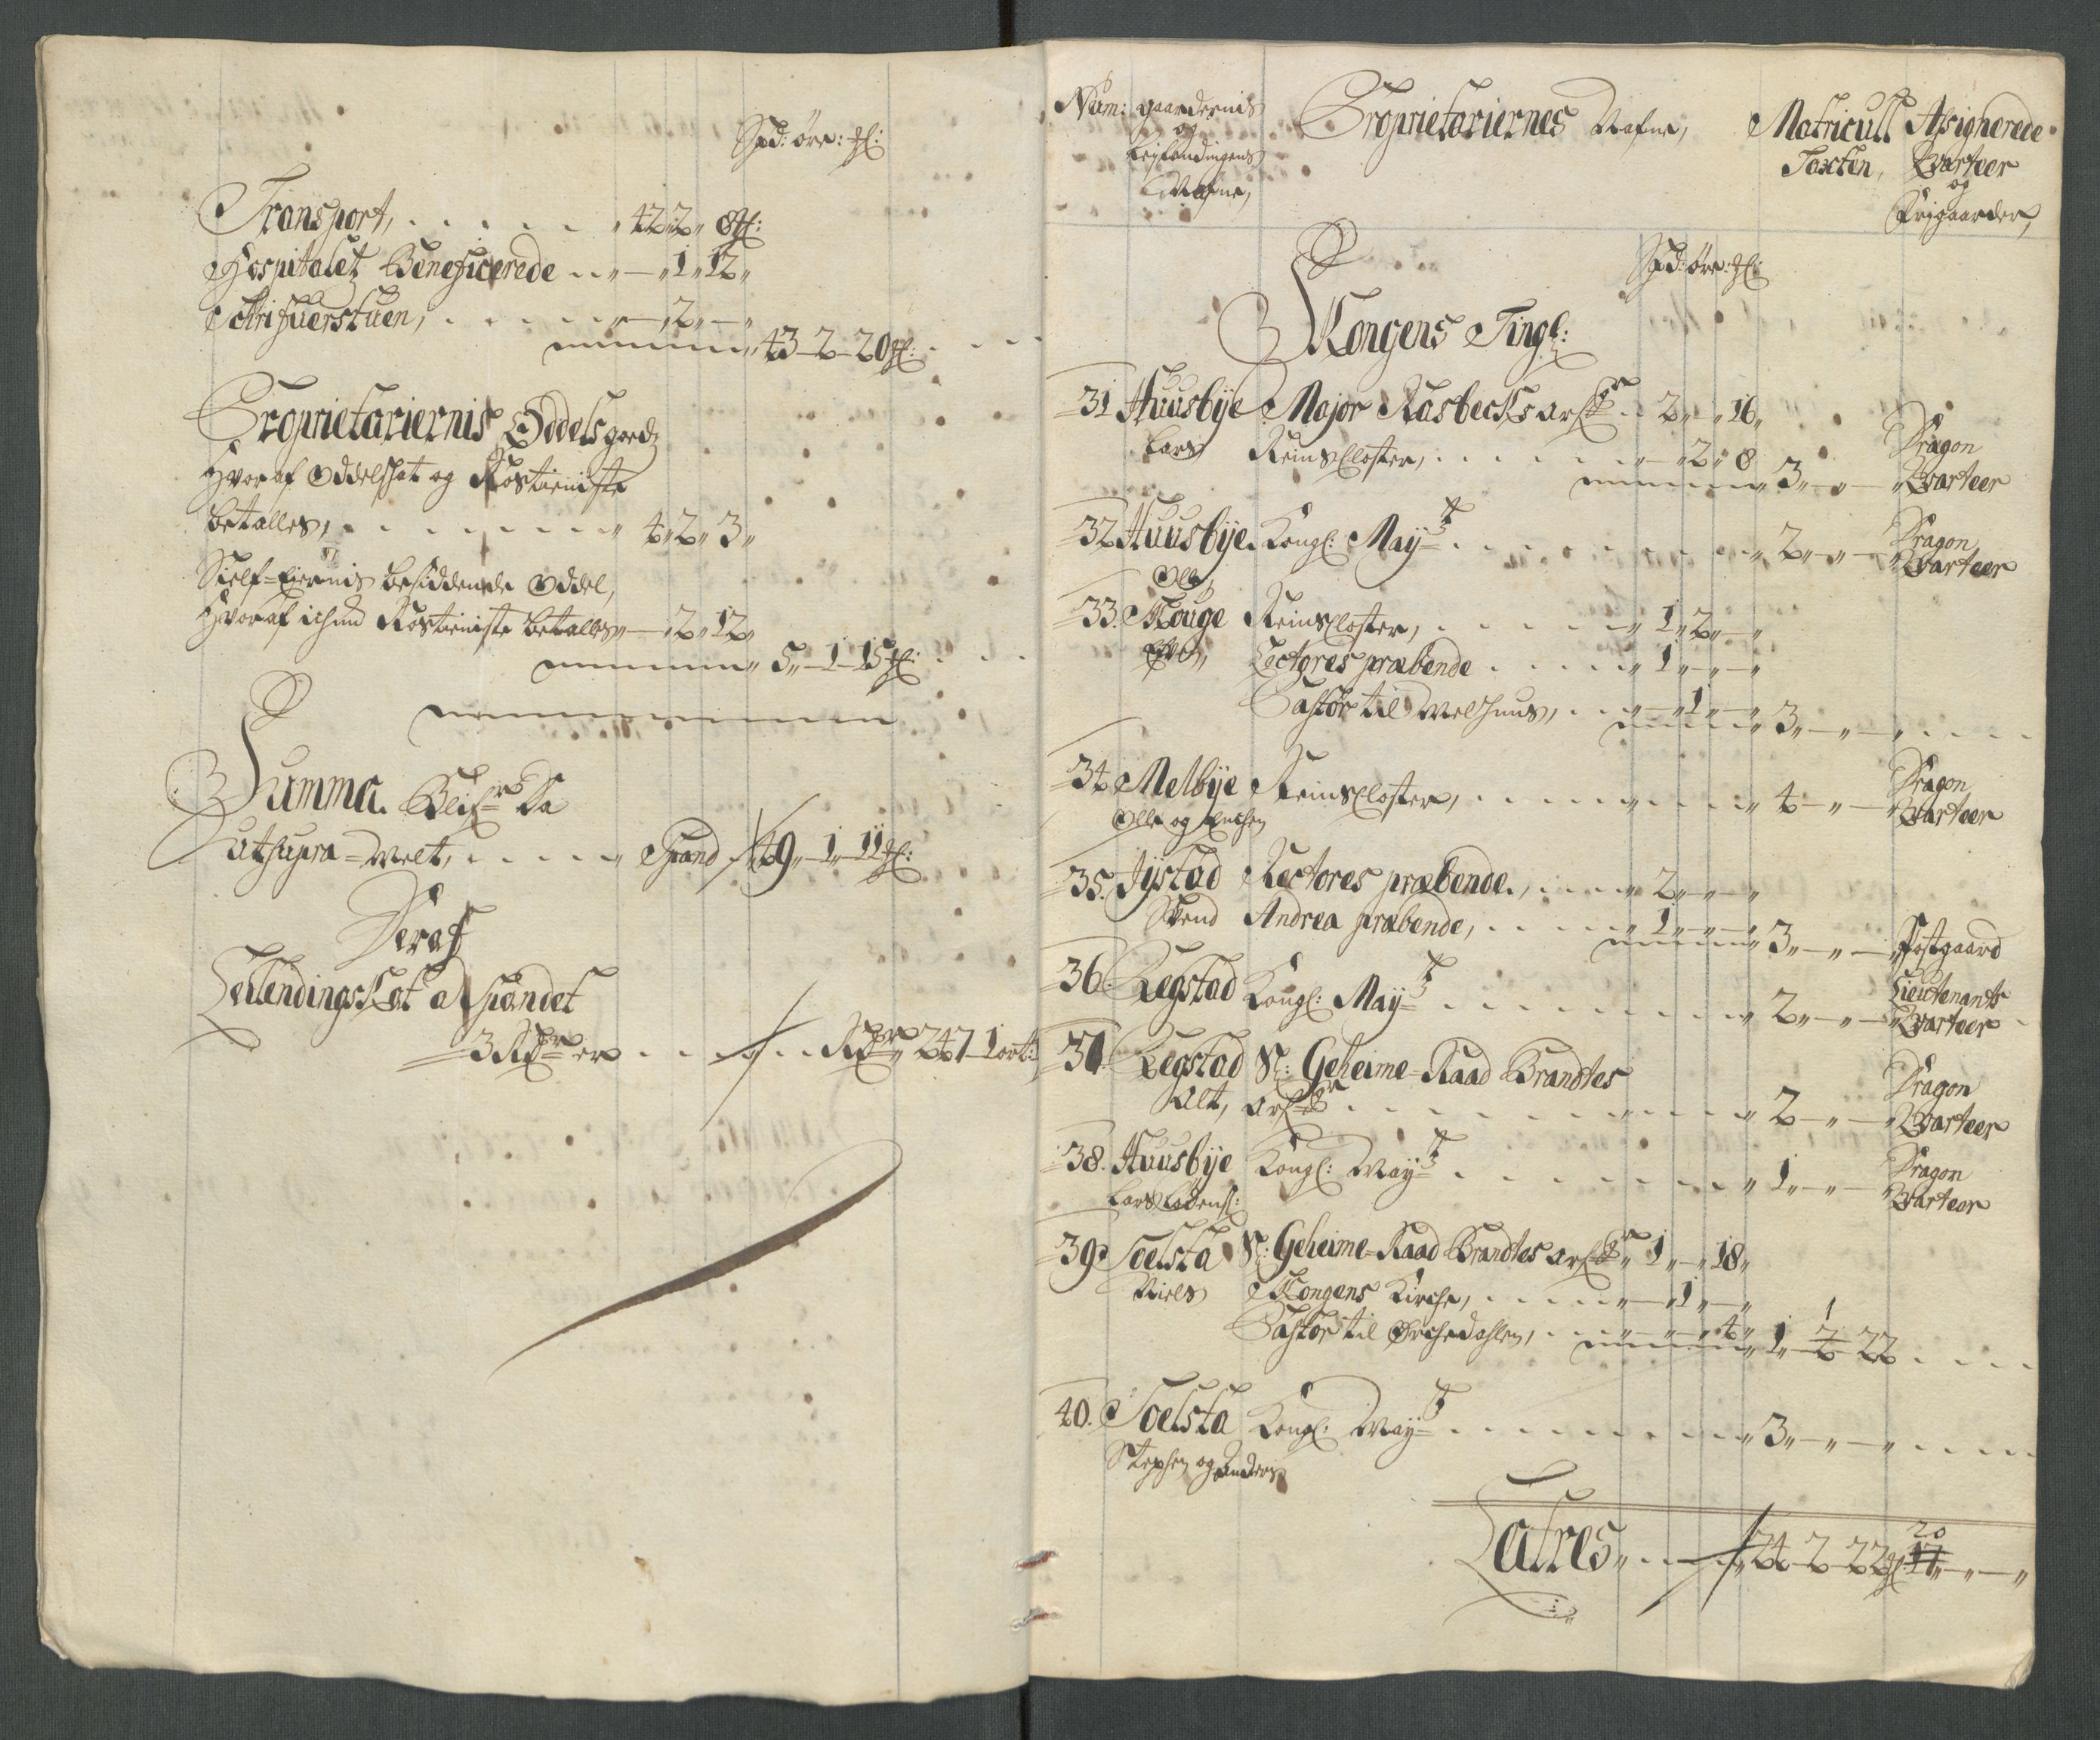 Spd: öre: ℳ:
Transport, . . . . . . „ 42„ 2„ 8ℳ:
Hospitalet Beneficerede . . „ — „ 1„ 12„
Schrifuerstuen, . . . . . „ — „ 2„ — „
43 - 2 - 20ℳ:
Proprietariernis Oddels gods
Hvoraf Oddelschat og Rostieniste
betalles, . . . . . . . . „ 4„ 2„ 3„
Sielf-Eiernis besiddende Oddel,
Hvoraf ichund Rostieniste betalles„ — „ 2„ 12„
5„ - 1 - 15ℳ:
Summa. Blifr Da
utsupra-melt, . . . . . „ Spand 49„ - 1 - 11ℳ:
Deraf
Leilendings Skat af Spandet
3 Rdr er . . . . . Rdr„ 247 - 1 ort:
Num: gaardernis
og
Leylendingens
Nafne,
Proprietariernes Nafne,
Matricull
Taxten,
Assignerede
Qvarteer
og
Frigaarder,
Spd: öre: ℳ:
Kongens Tingl:
31 Huusbÿe Major Kasbecks arf: . . 2„ „ 16„
Lars Reins Closter, . . . . . . „ — „ 2„ 8
3„ — „ — „ Dragon Qvarteer
32 Huusbÿe. Kongl: Maytz . . . . . . . . . „ 2„ — „ — Dragon Qvarteer
Ole,
33. Kouge Reins Closter, . . . . . . „ 1„ 2„ — „
Lectores præbende . . . . . „ 1„ — „ — „
Pastor til Melhuus, . . . „ — „ 1„ — „
3„ — „ — „ . . . .
34. Melbÿe Reins Closter, . . . . . . . . . . „ 4 — „ — „ Dragon Qvarteer
Olle og
35. Jystad Rectores præbende., . . . . „ 2„ — „ — „
Svend Andrea præbende, . . . . . „ 1„ — „ — „
3„ — „ — „ Postgaard
36. Legstad Kongl: Maytz . . . . . . . . . „ 2„ — „ — „ Lieutenants Qvarteer
37 Legstad Sl: Geheime-Raad Brandtes
Alt, arf: . . . . . . . . . „ 2 — „ — „ Dragon Qvarteer
38. Huusbÿe Kongl: Maytz . . . . . . . . . „ 1„ — „ — „ Dragon Qvarteer
Lars
39. Soelsta Sl: Geheime-Raad Brandtes arf: „ 1„ — „ 18„
Niels Kongens Kirche, . . . . . „ — „ 1„ — „
Pastor til Orchedahlen, . . . „ — „ — „ 4„
1„ 1/2 22 . . . .
40. Soelsta Kongl: Maytz . . . . . . . . . „ 3„ — „ — „ . . . .
Stephen og Anders
20
Latres„ . . . . 24 - 2 - 22ℳ: 17„ — „ — „